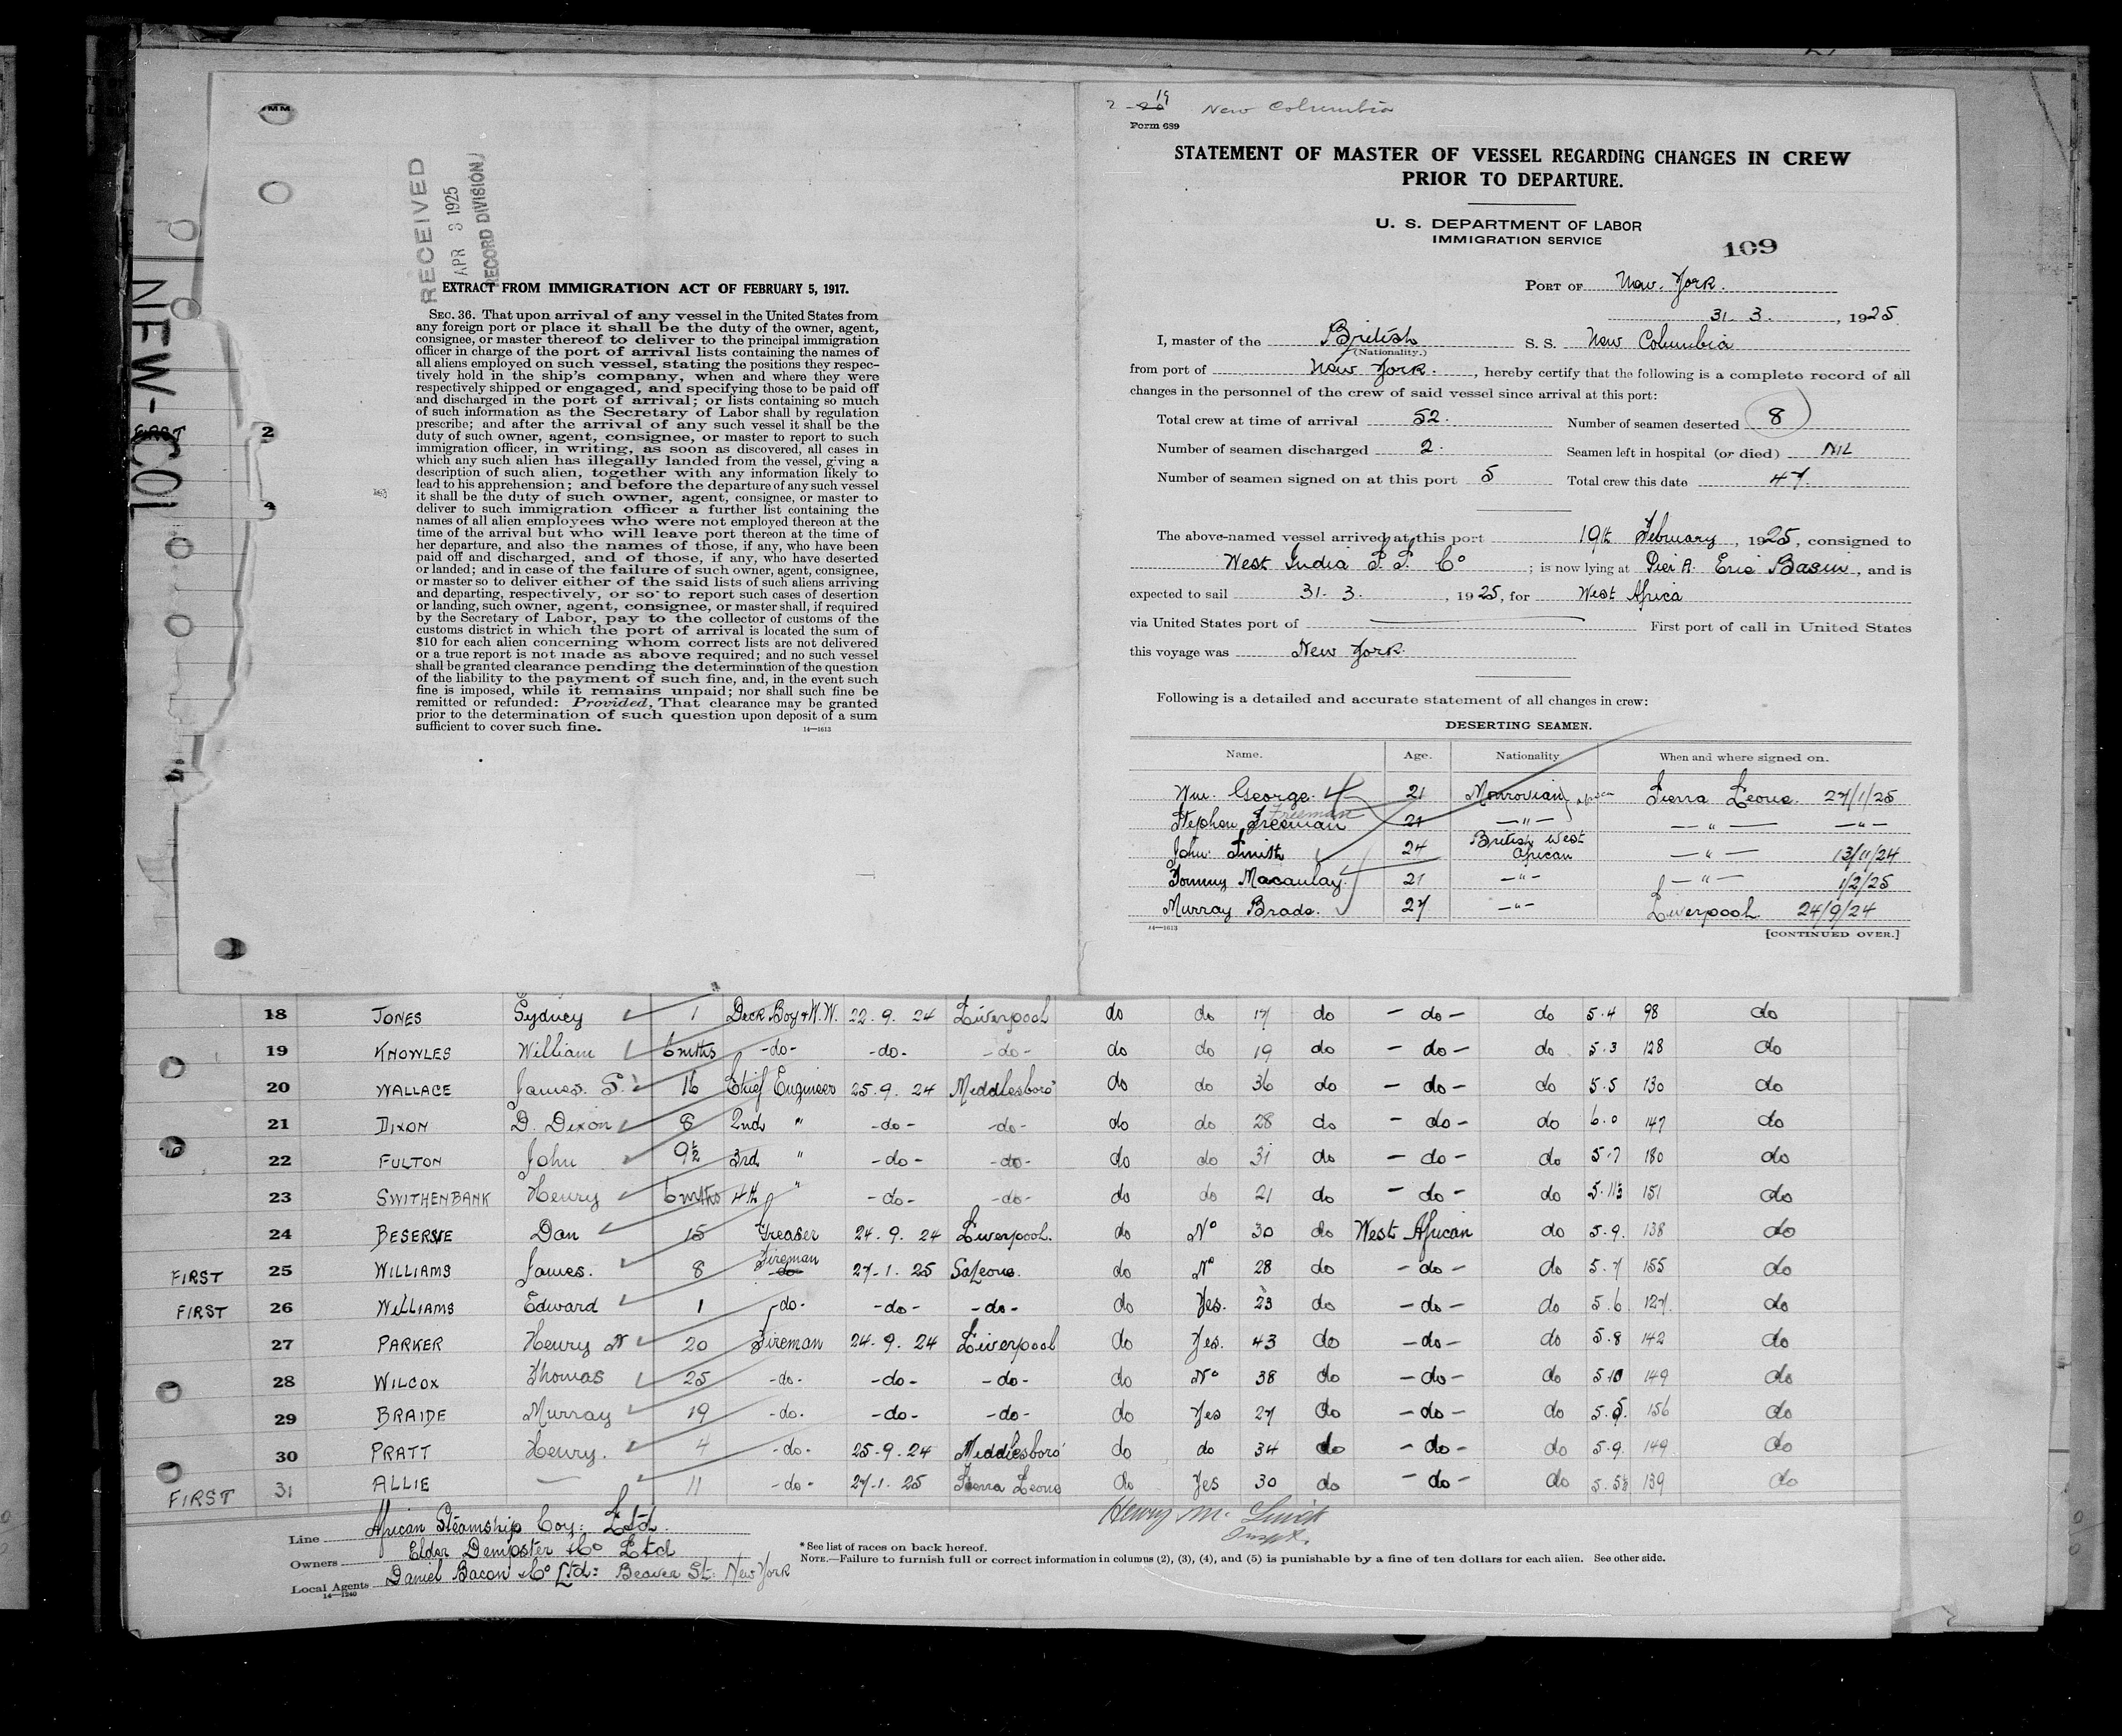 NEW-COL
FIRST
2
4
RECEIVED
APR 3 1925
RECORD DIVISION
EXTRACT FROM IMMIGRATION ACT OF FEBRUARY 5, 1917.
SEC. 36. That upon arrival of any vessel in the United States from
any foreign port or place it shall be the duty of the owner, agent,
consignee, or master thereof to deliver to the principal immigration
officer in charge of the port of arrival lists containing the names of
all aliens employed on such vessel, stating the positions they respec-
tively hold in the ship's company, when and where they were
respectively shipped or engaged, and specifying those to be paid off
and discharged in the port of arrival; or lists containing so much
of such information as the Secretary of Labor shall by regulation
prescribe; and after the arrival of any such vessel it shall be the
duty of such owner, agent, consignee, or master to report to such
immigration officer, in writing, as soon as discovered, all cases in
which any such alien has illegally landed from the vessel, giving a
description of such alien, together with any information likely to
lead to his apprehension; and before the departure of any such vessel
it shall be the duty of such owner, agent, consignee, or master to
deliver to such immigration officer a further list containing the
names of all alien employees who were not employed thereon at the
time of the arrival but who will leave port thereon at the time of
her departure, and also the names of those, if any, who have been
paid off and discharged, and of those, if any, who have deserted
or landed; and in case of the failure of such owner, agent, consignee,
or master so to deliver either of the said lists of such aliens arriving
and departing, respectively, or so to report such cases of desertion
or landing, such owner, agent, consignee, or master shall, if required
by the Secretary of Labor, pay to the collector of customs of the
customs district in which the port of arrival is located the sum of
$10 for each alien concerning whom correct lists are not delivered
or a true report is not made as above required; and no such vessel
shall be granted clearance pending the determination of the question
of the liability to the payment of such fine, and, in the event such
fine is imposed, while it remains unpaid; nor shall such fine be
remitted or refunded: Provided, That clearance may be granted
prior to the determination of such question upon deposit of a sum
sufficient to cover such fine.
14—1613
2 - 19 New Columbia
Form 689
STATEMENT OF MASTER OF VESSEL REGARDING CHANGES IN CREW
PRIOR TO DEPARTURE.
U. S. DEPARTMENT OF LABOR
IMMIGRATION SERVICE
109
PORT OF New York.
31. 3. , 1925.
I, master of the British S. S. New Columbia
(Nationality.)
from port of New York. , hereby certify that the following is a complete record of all
changes in the personnel of the crew of said vessel since arrival at this port:
Total crew at time of arrival 52. Number of seamen deserted 8
Number of seamen discharged 2. Seamen left in hospital (or died) NIL
Number of seamen signed on at this port 5 Total crew this date 47.
The above-named vessel arrived at this port 19th February , 1925, consigned to
West India S. S. Co ; is now lying at Pier A. Erie Basin , and is
expected to sail 31. 3. , 1925, for West Africa
via United States port of First port of call in United States
this voyage was New York.
Following is a detailed and accurate statement of all changes in crew:
DESERTING SEAMEN.
Name. Age. Nationality When and where signed on.
Wm. George 21 Monrovian Sierra Leone. 27/1/25
Freeman
Stephen Freeman 21 —"— —"— —"—
John Smith 24 British West African —"— 13/11/24
Tommy Macaulay. 21 —"— —"— 1/2/25
Murray Brade. 27 —"— Liverpool 24/9/24
14—1613
[CONTINUED OVER.]
18 JONES Sydney 1 Deck Boy & W.W. 22. 9. 24 Liverpool do do 17 do - do - do 5.4 98 do
19 KNOWLES William 6 mths -do- -do- -do- do do 19 do - do - do 5.3 128 do
20 WALLACE James. S. 16 Chief Engineer 25. 9. 24 Middlesboro' do do 36 do - do - do 5.5 130 do
21 DIXON D. Dixon 8 2nd " -do- -do- do do 28 do - do - do 6.0 147 do
22 FULTON John 9½ 3rd " -do- -do- do do 31 do - do - do 5.7 180 do
23 SWITHENBANK Henry 6 mths 4th " -do- -do- do do 21 do - do - do 5.11½ 151 do
24 BESERVE Dan 15 Greaser 24. 9. 24 Liverpool. do No 30 do West African do 5.9. 138 do
FIRST 25 WILLIAMS James. 8 Fireman do 27-1. 25 Sa Leone. do No 28 do - do - do 5.7 155 do
FIRST 26 WILLIAMS Edward 1 -do- -do- -do- do Yes. 23 do - do - do 5.6 127. do
27 PARKER Henry N 20 Fireman 24. 9. 24 Liverpool do Yes. 43 do - do - do 5.8 142 do
28 WILCOX Thomas 25 -do- -do- -do- do No 38 do - do - do 5.10 149 do
29 BRAIDE Murray 19 -do- -do- -do- do Yes 27 do - do - do 5.5. 156 do
30 PRATT Henry. 4 -do- 25-9. 24 Middlesboro' do do 34 do - do - do 5.9. 149 do
FIRST 31 ALLIE — 11 -do- 27.1. 25 Sierra Leone do Yes 30 do - do - do 5.5½ 139 do
Line African Steamship Coy: Ltd.
Owners Elder Dempster & Co Ltd
Local Agents Daniel Bacon & Co Ltd: Beaver St: New York
14—1240
Henry M.
Inspt.
* See list of races on back hereof.
NOTE.—Failure to furnish full or correct information in columns (2), (3), (4), and (5) is punishable by a fine of ten dollars for each alien. See other side.